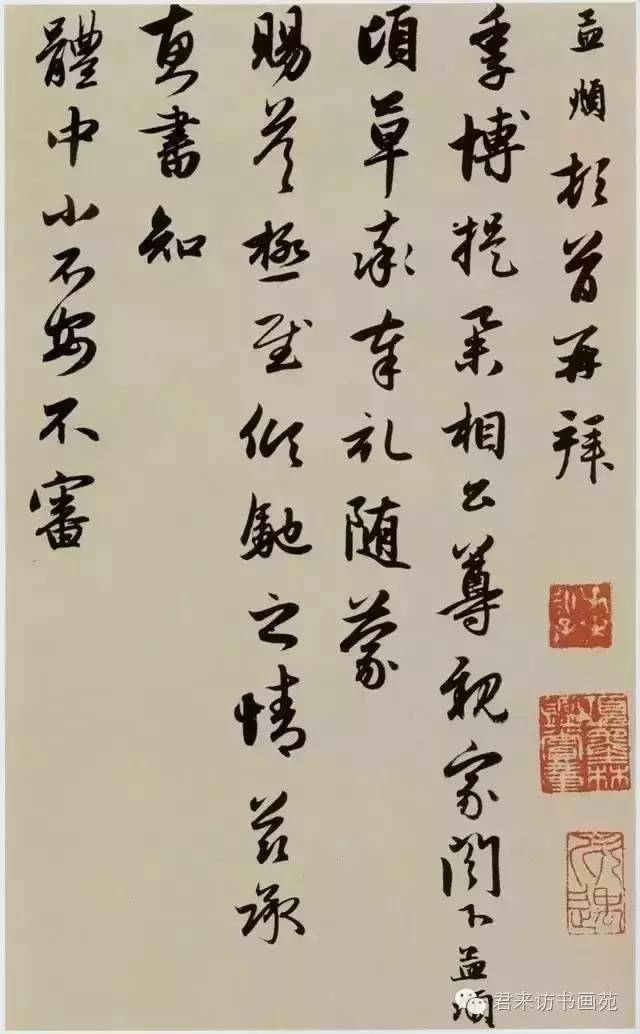 孟頫頓首再拜
季博提舉相公尊親家閣下孟頫
頃草率奉礼随蒙
賜答極至傾馳之情茲承
惠書知
體中小不安不審
君来访书画苑